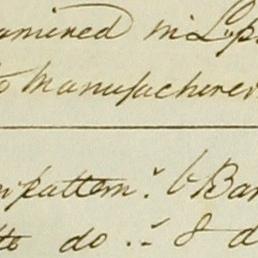 amined in Lp
to Manufacturer
pattern. 6 Bar
do. 8 d